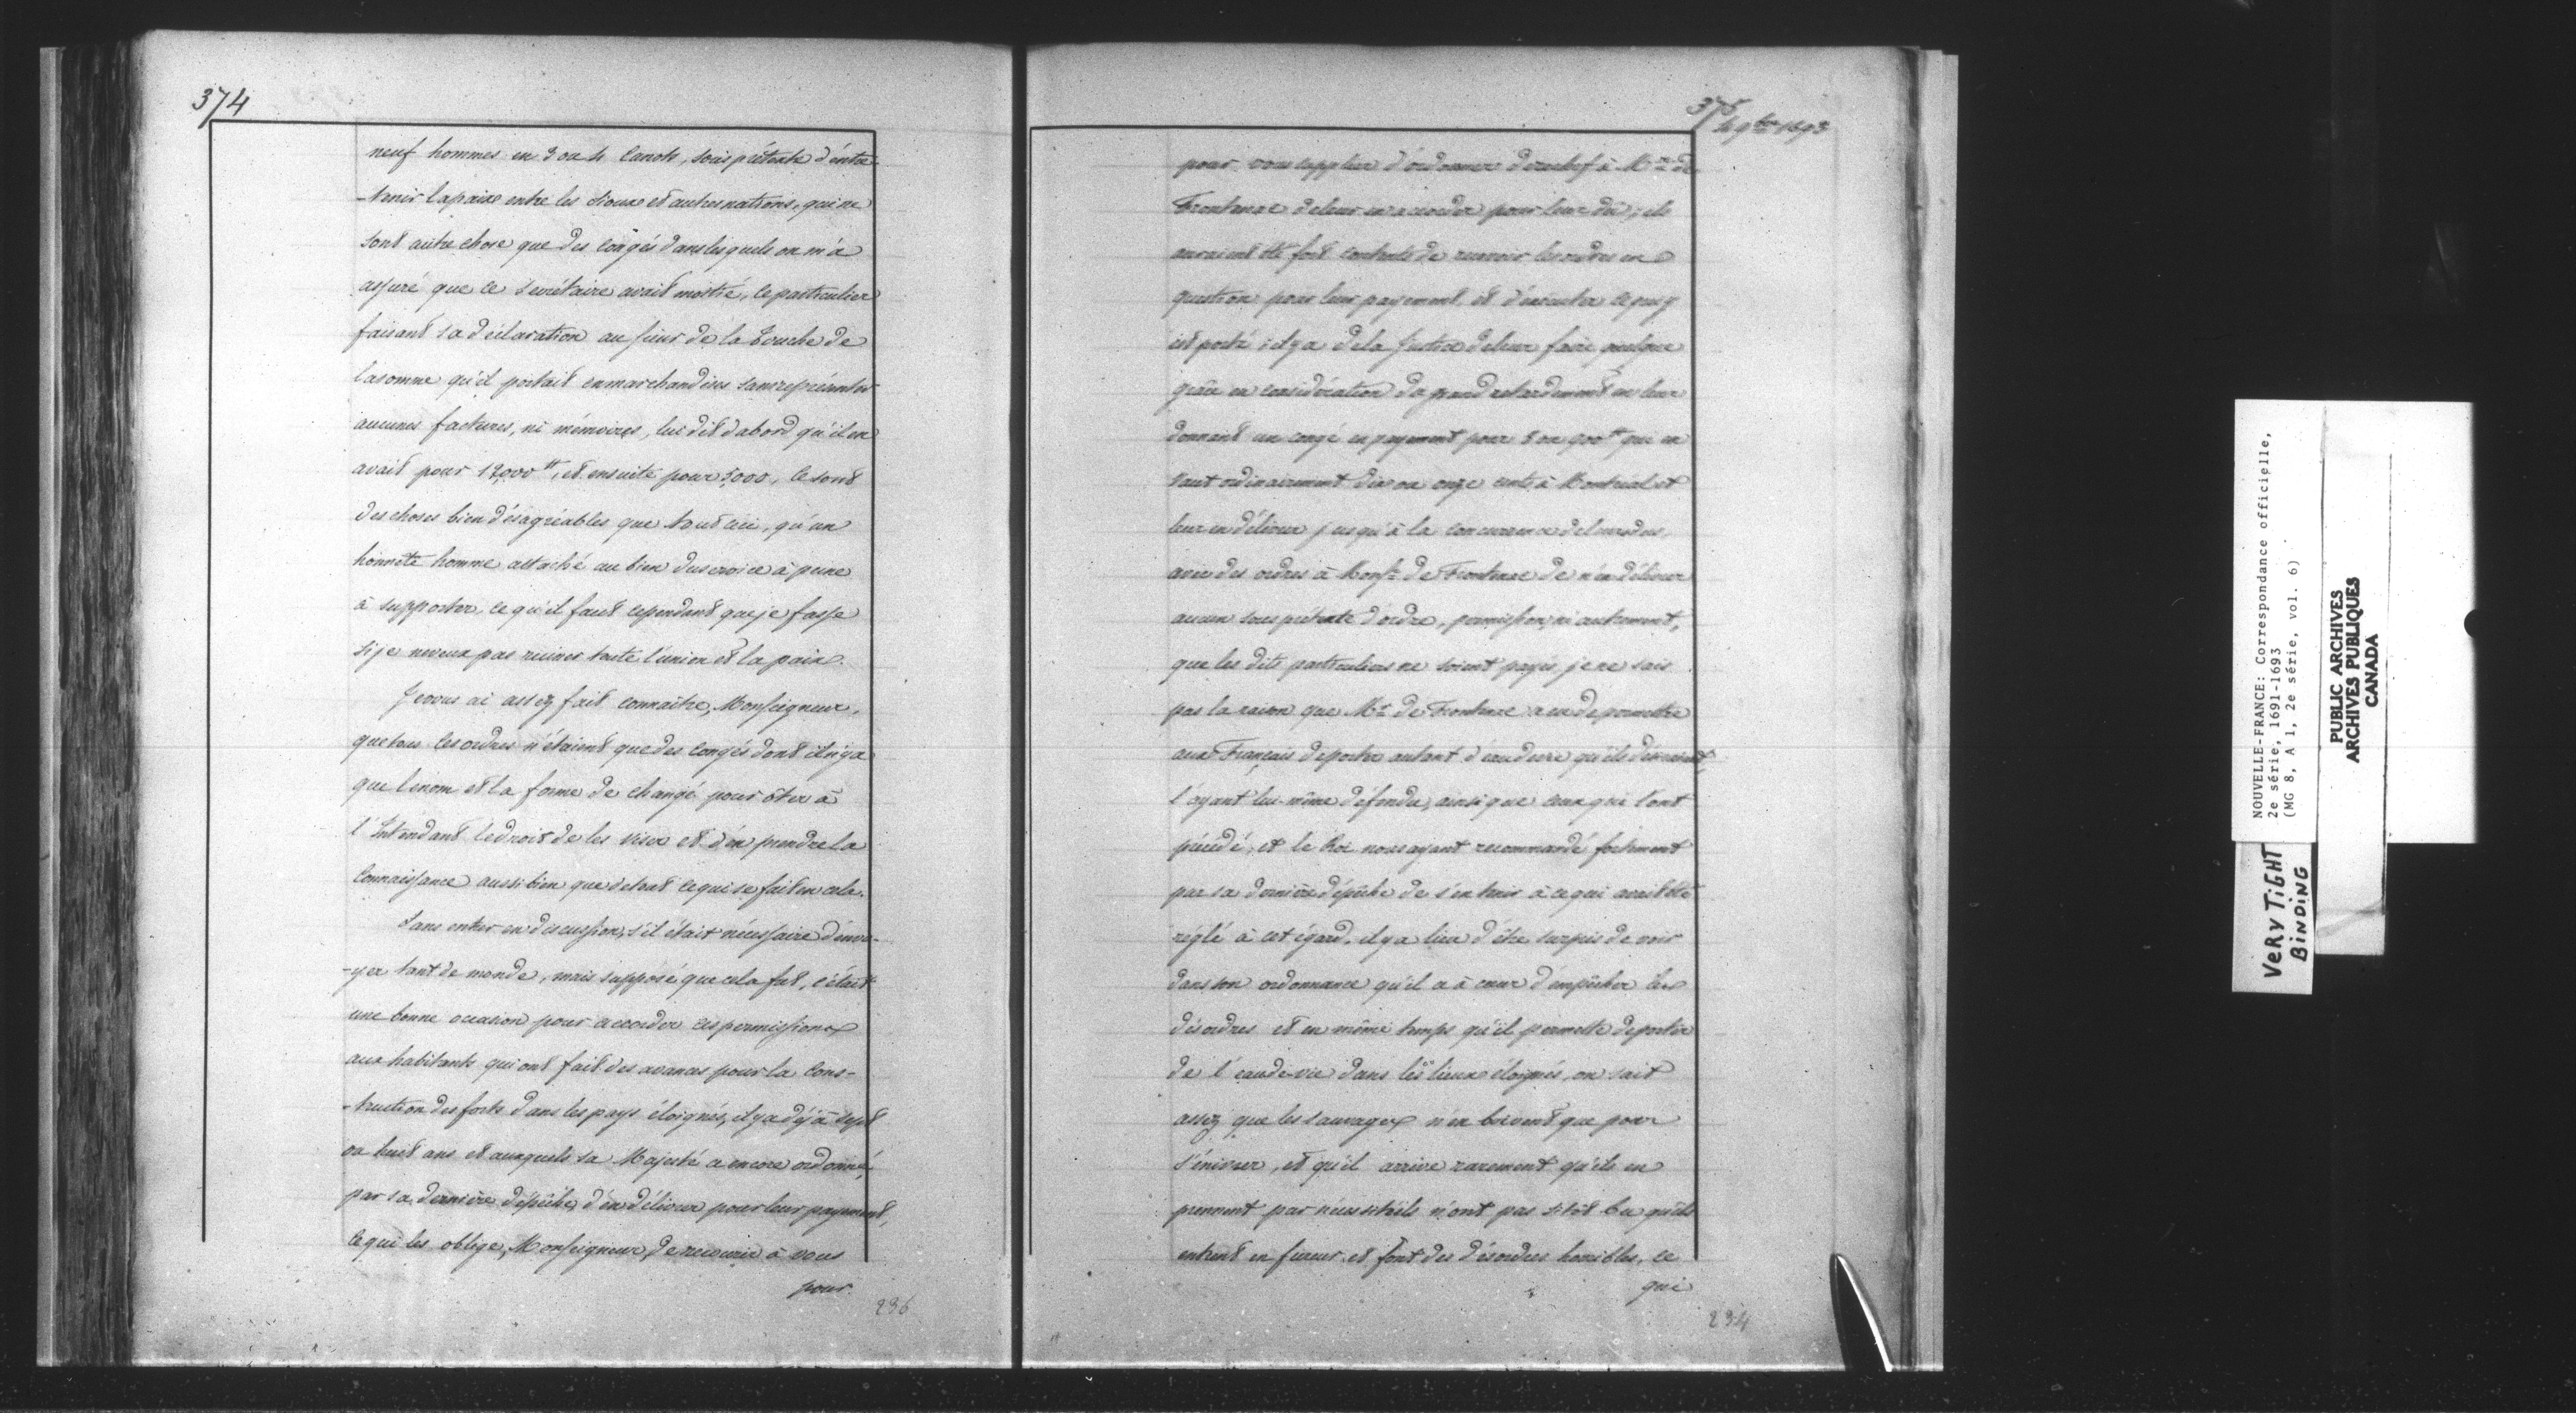 374
neuf hommes en 3 ou 4 Canots, sous prétexte d'entre-
-tenir la paix entre les Sioux et autres nations, qui ne
sont autre chose que des congés dans lesquels on m'a
assuré que le secrétaire avait moitié, le particulier
faisant sa déclaration au sieur de la Touche de
la somme qu'il portait en marchandises sans représenter
aucunes factures, ni mémoires, lui dit d'abord qu'il en
avait pour 12,000 tt, et ensuite pour 5000, ce sont
des choses bien désagréables que tout ceci, qu'un
honnête homme attaché au bien du service à peine
à supporter, ce qu'il faut cependant que je fasse
si je ne veux pas ruiner toute l'union et la paix.
Je vous ai assez fait connaître, Monseigneur,
que tous les ordres n'étaient que des congés dont il n'y a
que le nom et la forme de changé pour ôter à
l'Intendant le droit de les viser et d'en prendre la
connaissance aussi bien que de tout ce qui se fait en cela.
Sans entrer en discussion, s'il était nécessaire d'envo-
-yer tant de monde, mais supposé que cela fut, c'était
une bonne occasion pour accorder ces permissions
aux habitants qui ont fait des avances pour la cons-
-truction des forts dans les pays éloignés, il y a déjà sept
ou huit ans et auxquels sa Majesté a encore ordonné,
par sa dernière dépêche, d'en délivrer pour leur payement,
ce qui les oblige, Monseigneur, de recourir à vous
pour
236
375
4 9bre 1693
pour vous supplier d'ordonner derechef à Mr de
Frontenac de leur en accorder pour leur dû; ils
auraient été fort contents de recevoir les ordres en
question pour leur payement et d'exécuter ce qui y
est porté; il y a de la justice de leur faire quelque
grâce en considération du grand retardement en leur
donnant un congé en payement pour 8 ou 900 tt qui en
vaut ordinairement dix ou onze cents à Montréal et
leur en délivrer jusqu'à la concurrence de leurs dus,
avec des ordres à Monsr de Frontenac de n'en délivrer
aucun sous prétexte d'ordre, permission, ni autrement,
que les dits particuliers ne soient payés, je ne sais
pas la raison que Mr de Frontenac a eu de permettre
aux Français de porter autant d'eau de vie qu'ils
l'ayant lui-même défendu, ainsi que ceux qui l'ont
précédé, et le Roi nous ayant recommandé fortement
par sa dernière dépêche de s'en tenir à ce qui avait été
réglé à cet égard, il y a lieu d'être surpris de voir
dans son ordonnance qu'il a à cœur d'empêcher les
désordres et en même temps qu'il permette de porter
de l'eau-de-vie dans les lieux éloignés, on sait
assez que les sauvages n'en boivent que pour
s'énivrer, et qu'il arrive rarement qu'ils en
prennent par nécessité, ils n'ont pas sitôt bu qu'ils
entrent en fureur et font des désordres horribles, ce
qui
234
NOUVELLE-FRANCE: Correspondance officielle,
2e série, 1691-1693
(MG 8, A 1, 2e série, vol. 6)
VERY TIGHT
BINDING
PUBLIC ARCHIVES
ARCHIVES PUBLIQUES
CANADA